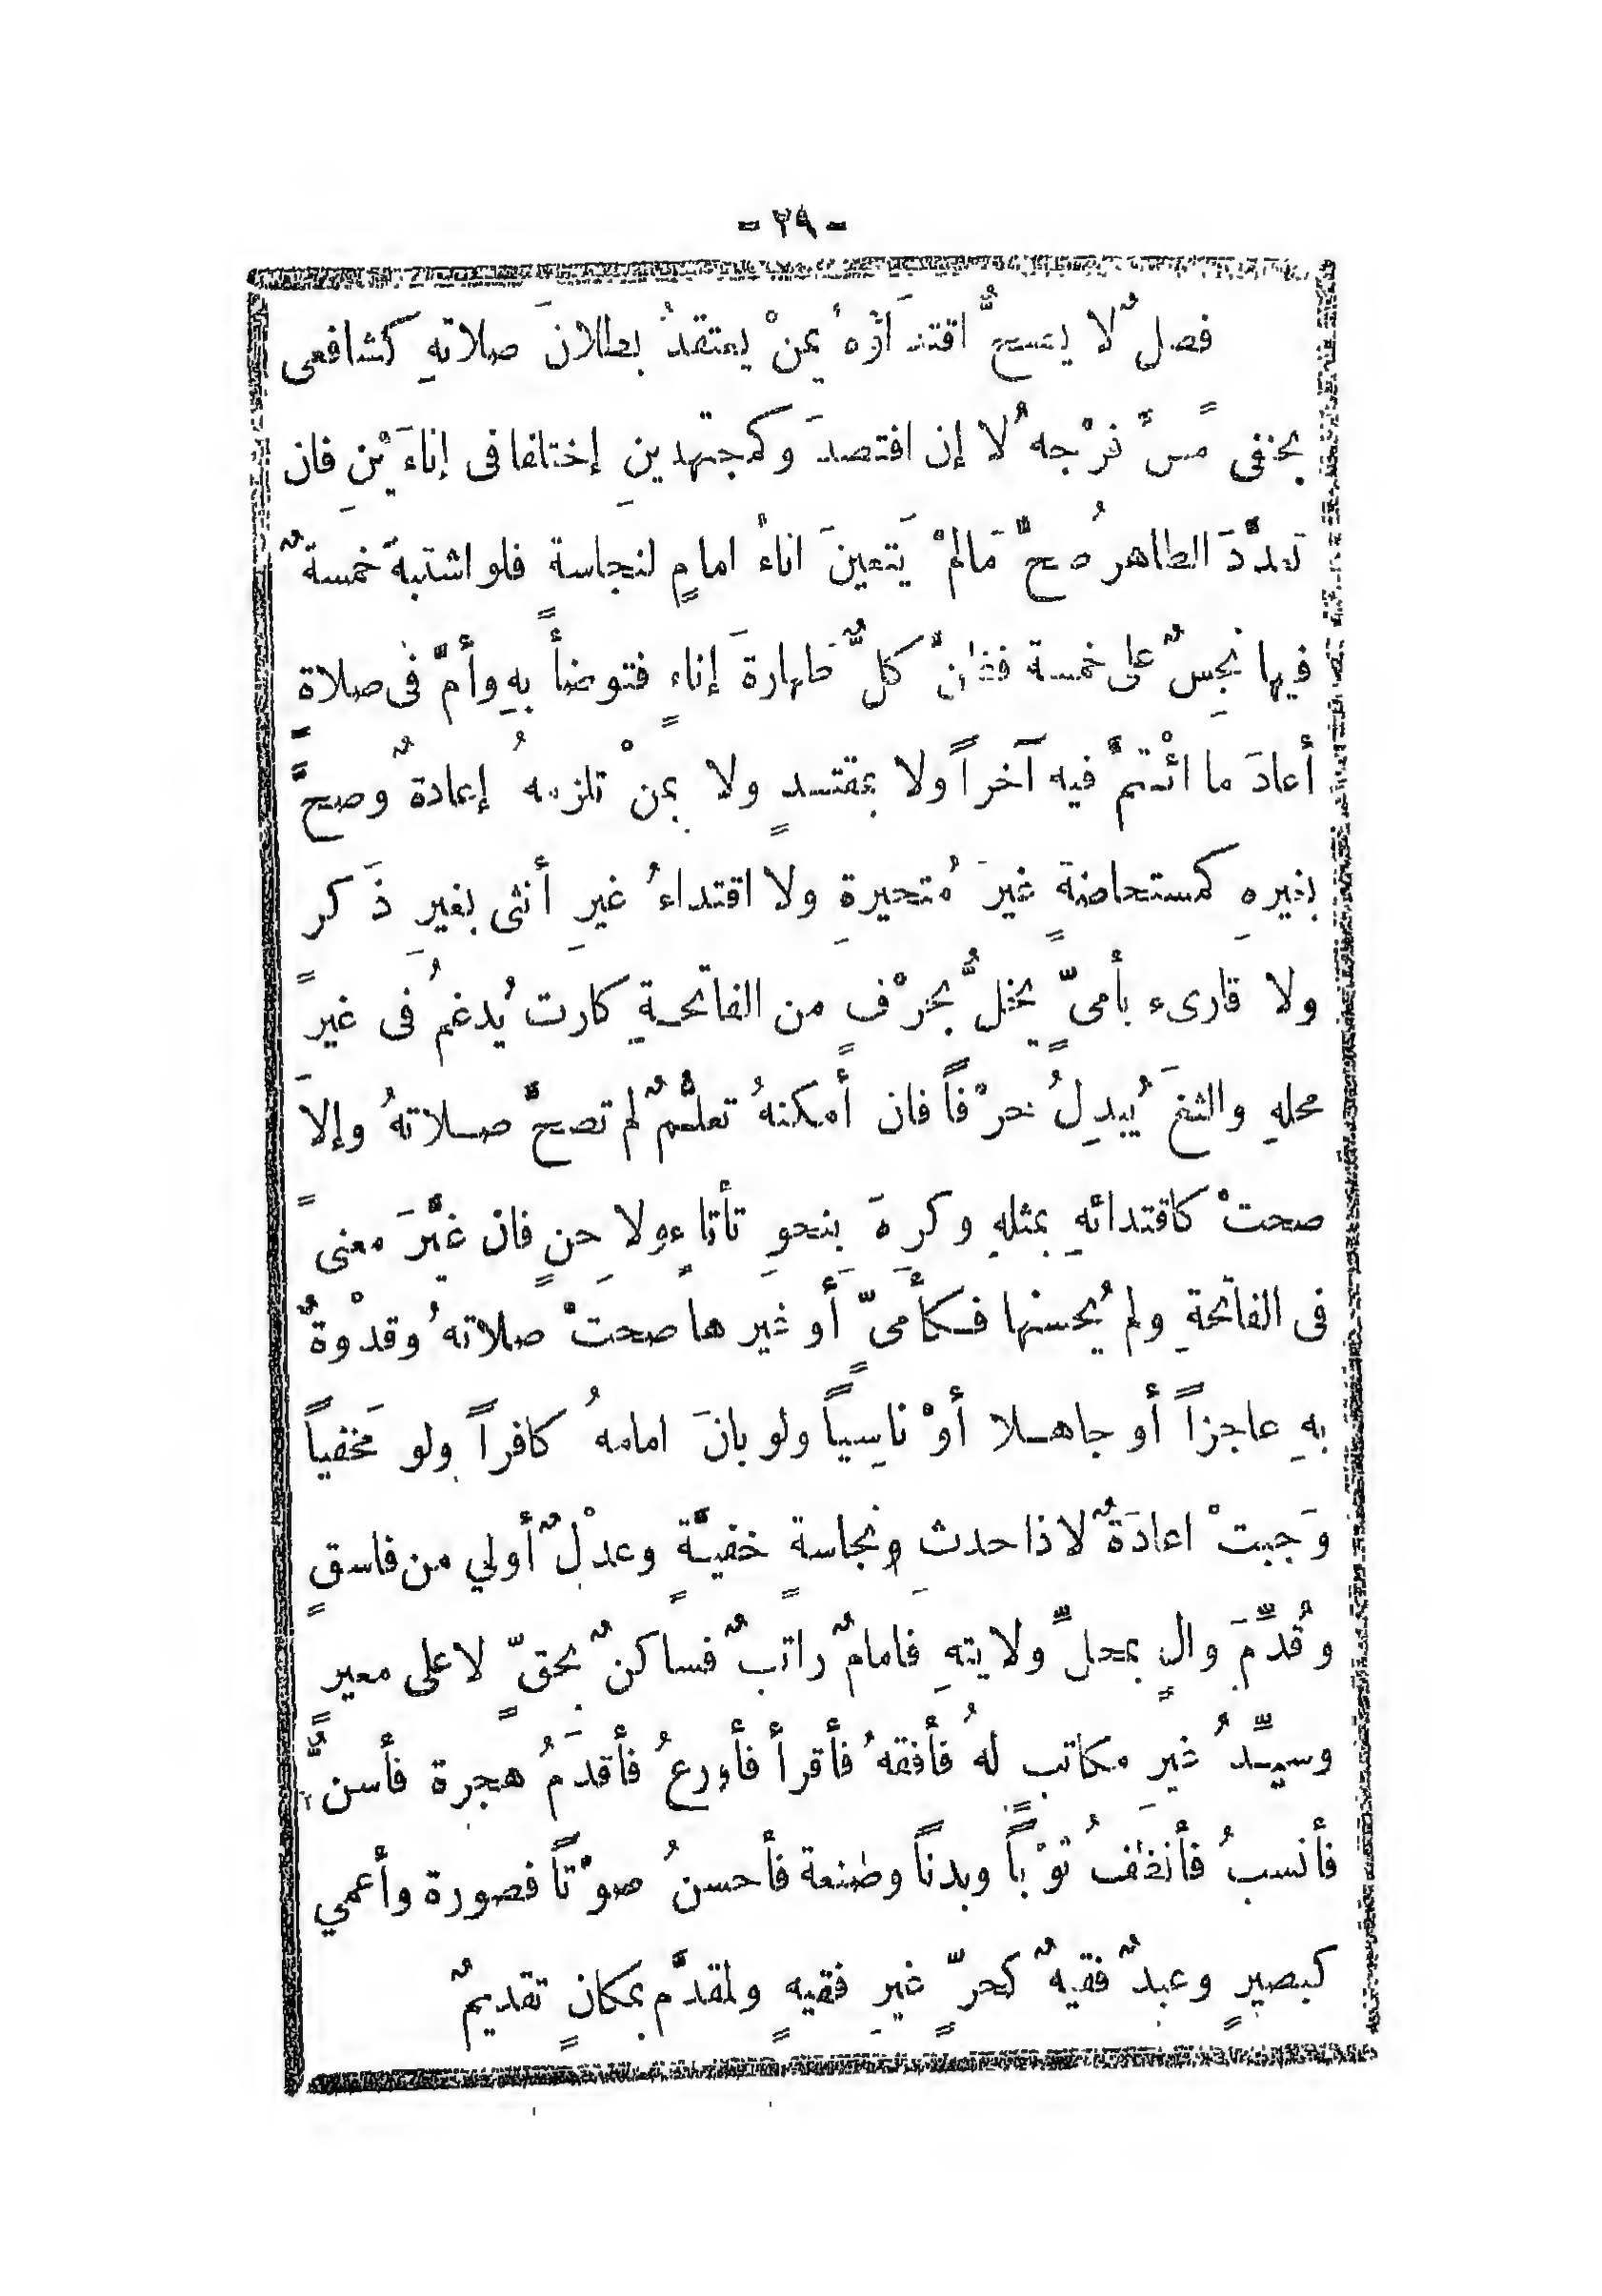 - ٢٩ -
فصلٌ لا يصحُّ اقتداَؤُهُ بمنْ يعتقدُ بطلانَ صلاتهِ كشافعى
بحنفى مسَّ فرْجهُ لا إن افتصدَ وكمجتهدينِ إختلفا فى إناءَيْنِ فان
تعدَّدَ الطاهرُ صحَّ مَالمْ يَتعينَ اناءُ امامٍ لنجاسةٍ فلو اشتبهَ خمسةٌ
فيها نجِسٌ على خمسة فظنَّ كلٌّ طهارةَ إناءٍ فتوضأَ بهِ وأمَّ فى صلاةٍ
أعادَ ما ائْتمَّ فيه آخراً ولا بمقتدٍ ولا بمنْ تلزمهُ إعادةٌ وصحَّ
بغيرهِ كمستحاضةٍ غيرَ مُتحيرةِ ولا اقتداءُ غيرِ أنثى بغيرِ ذَكر
ولا قارىء بأمىٍّ يخلُّ بحرْفٍ من الفاتحةِ كارت يُدغمُ فى غيرِ
محلهِ والثغَ يُبدِلُ حرْفاً فان أمكنهُ تعلُّمٌ لم تصحَّ صلاتهُ وإلاَّ
صحتْ كاقتدائهِ بمثلهِ وكرِهَ بنحوِ تأتاءٍ ولاحِنٍ فان غيَّرَ معنى
فى الفاتحةِ ولم يُحسنها فكأمىٍّ أو غيرها صحتْ صلاتهُ وقدْوةٌ
بهِ عاجزاً أو جاهلا أوْ ناسِياً ولو بانَ امامهُ كافراً ولو مَخفياً
وَجبتْ اعادَةٌ لا ذا حدثِ ونجاسةٍ خفيَّةٍ وعدْلٌ أولي من فاسقٍ
وقُدِّمَ والٍ بمحلِّ ولايتهِ فامامٌ راتبٌ فساكنٌ بحقٍّ لا على معيرٍ
وسيِّدُ غيرِ مكاتبٍ لهُ فأفقهُ فأقرأ فأورعُ فأقدَمُ هجرة فأسنُّ
فأنسبُ فأنظفُ ثوْباً وبدناً وصنعة فأحسنُ صوْتاً فصورة وأعمي
كبصيرٍ وعبدٌ فقيهٌ كحرٍّ غيرِ فقيهٍ ولمقدَّم بمكانٍ تقديمٌ